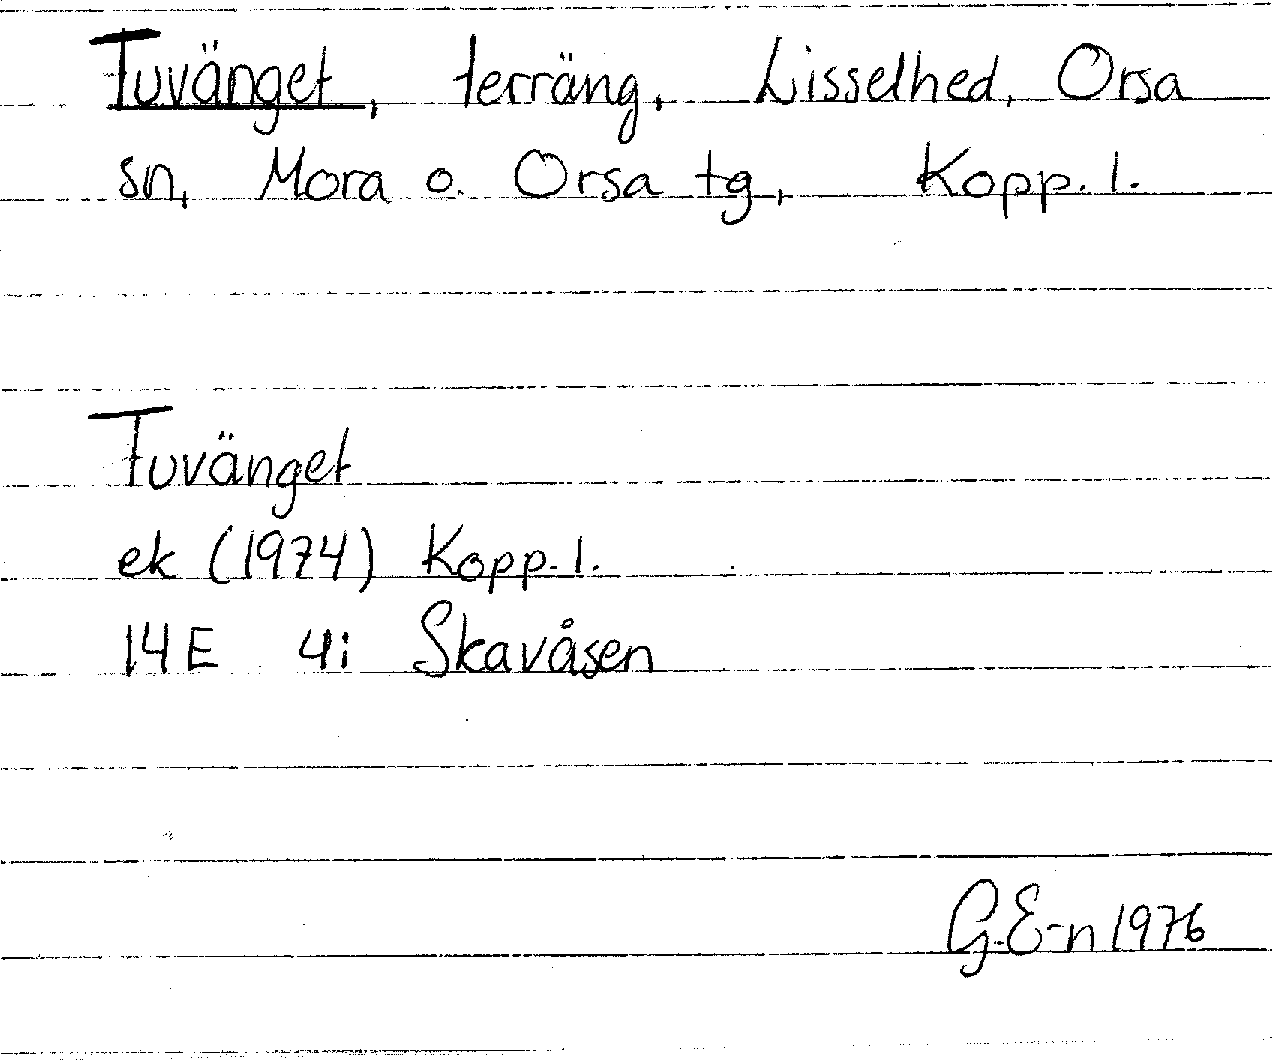 Tuvänget, terräng, Lisselhed, Orsa
sn, Mora o. Orsa tg, Kopp. l.
Tuvänget
ek (1974) Kopp. l.
14E 4i Skavåsen
G.E-n 1976